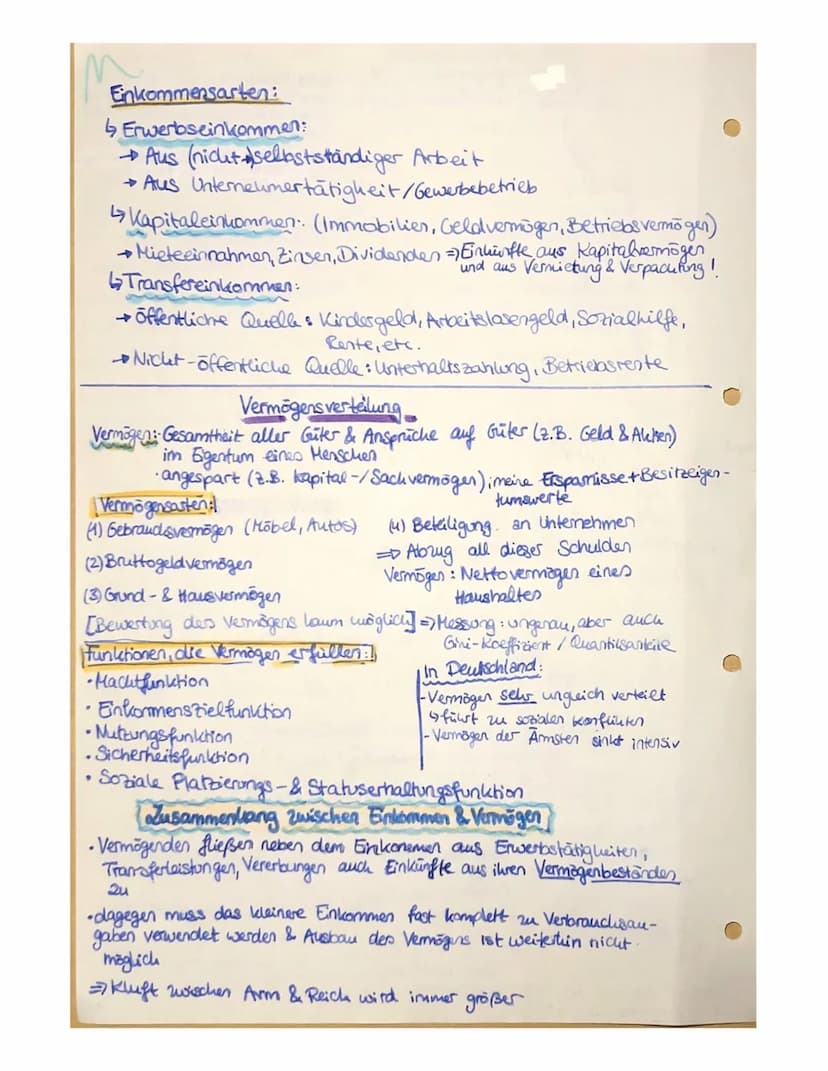 Einkommensarten:
↳ Erwerbseinkommen:
→ Aus (nicht-)selbstständiger Arbeit
→ Aus Unternehmertätigkeit/Gewerbebetrieb
↳ Kapitaleinkommen: (Immobilien, Geldvermögen, Betriebsvermögen)
→ Mieteinnahmen, Zinsen, Dividenden => Einkünfte aus Kapitalvermögen
und aus Vermietung & Verpachtung!
↳ Transfereinkommen:
→ Öffentliche Quelle: Kindergeld, Arbeitslosengeld, Sozialhilfe,
Rente, etc.
→ Nicht-öffentliche Quelle: Unterhaltszahlung, Betriebsrente
Vermögensverteilung
Vermögen: · Gesamtheit aller Güter & Ansprüche auf Güter (z.B. Geld & Aktien)
im Eigentum eines Menschen
· angespart (z.B. Kapital-/Sachvermögen); meine Ersparnisse + Besitzeigen-
tumswerte
Vermögensarten:
(1) Gebrauchsvermögen (Möbel, Autos)
(2) Bruttogeldvermögen
(3) Grund- & Hausvermögen
(4) Beteiligung an Unternehmen
=> Abzug all dieser Schulden
Vermögen: Nettovermögen eines
Haushaltes
[Bewertung des Vermögens kaum möglich] => Messung: ungenau, aber auch
Gini-Koeffizient / Quantilsanteile
Funktionen, die Vermögen erfüllen:
· Machtfunktion
· Einkommenszielfunktion
· Nutzungsfunktion
· Sicherheitsfunktion
· Soziale Platzierungs- & Statuserhaltungsfunktion
In Deutschland:
- Vermögen sehr ungleich verteilt
↳ führt zu sozialen Konflikten
- Vermögen der Ärmsten sinkt intensiv
Zusammenhang zwischen Einkommen & Vermögen
· Vermögenden fließen neben dem Einkommen aus Erwerbstätigkeiten,
Transferleistungen, Vererbungen auch Einkünfte aus ihren Vermögenbeständen
zu
· dagegen muss das kleinere Einkommen fast komplett zu Verbrauchsau-
gaben verwendet werden & Ausbau des Vermögens ist weiterhin nicht
möglich
=> Kluft zwischen Arm & Reich wird immer größer